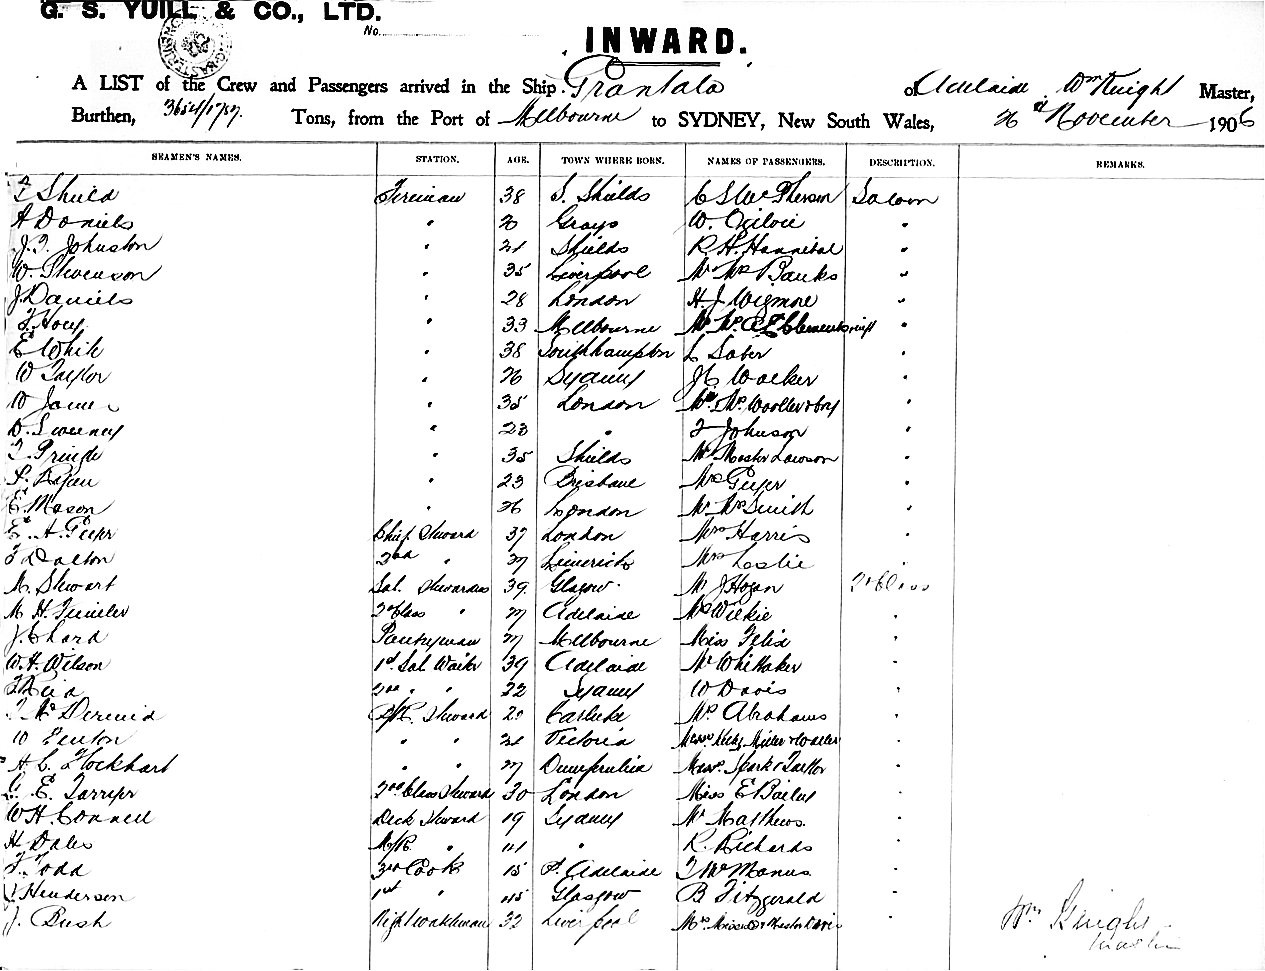 G. S. YUILL & CO., LTD.
No.
INWARD.
A LIST of the Crew and Passengers arrived in the Ship Grantala of Adelaide Wm Knight Master,
Burthen, 3654/1787. Tons, from the Port of Melbourne to SYDNEY, New South Wales, 26th November 1906
SEAMEN'S NAMES. STATION. AGE. TOWN WHERE BORN. NAMES OF PASSENGERS. DESCRIPTION. REMARKS.
Shield Fireman 38 S. Shields C S McPherson Saloon
A Daniels " 20 Grays W. Ogilvie "
J. T. Johnston " 21 Shields R. H. Hannibal "
W. Stevenson " 35 Liverpool Mr Mrs Banks "
J Daniels " 28 London H. J. Wigmore "
" 33 Melbourne Mr Mrs Clements "
E White " 38 Southhampton L "
W Taylor " 26 Sydney Walker "
W James " 35 London Mr Mrs Wooller & boy "
D. Sweeney " 23 " Johnson "
T. Pringle " 35 Shields Mr Master Lawson "
" 23 Brisbane Mrs "
E. Mason " 26 London Mr Mrs Smith "
E. A. Chief Steward 37 London Mrs Harris "
Dalton 2nd " 27 Limerick Mrs Leslie "
M. Stewart Sal. Stewardess 39 Glasgow Mr J Hogan 2nd Class
M. H. 2nd Class " 27 Adelaide Mrs Wilkie "
J. Chard Pantryman 27 Melbourne Miss Felix "
W. H. Wilson 1st Sal Waiter 39 Adelaide Mr Whittaker "
Reid 2nd " " 22 Sydney W Davis "
McDermid Steward 20 Carluke Mrs Abrahams "
W Fenton " " 21 Victoria Messrs Miller & Waller "
A. C. Lockhart " " 27 Messrs Spark & Taylor "
G. E. 2nd Class Steward 30 London Miss E Bailey "
W H Connell Deck Steward 19 Sydney Mr Matthews "
H Dales " 41 " R. Richards "
Todd 3rd Cook 15 P. Adelaide McManus "
J Henderson 1st " 45 Glasgow B Fitzgerald "
J. Bush Nightwatchman 32 Liverpool Mrs "
Wm Knight
Master